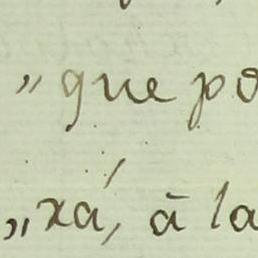 „ que po
„ xá, à la